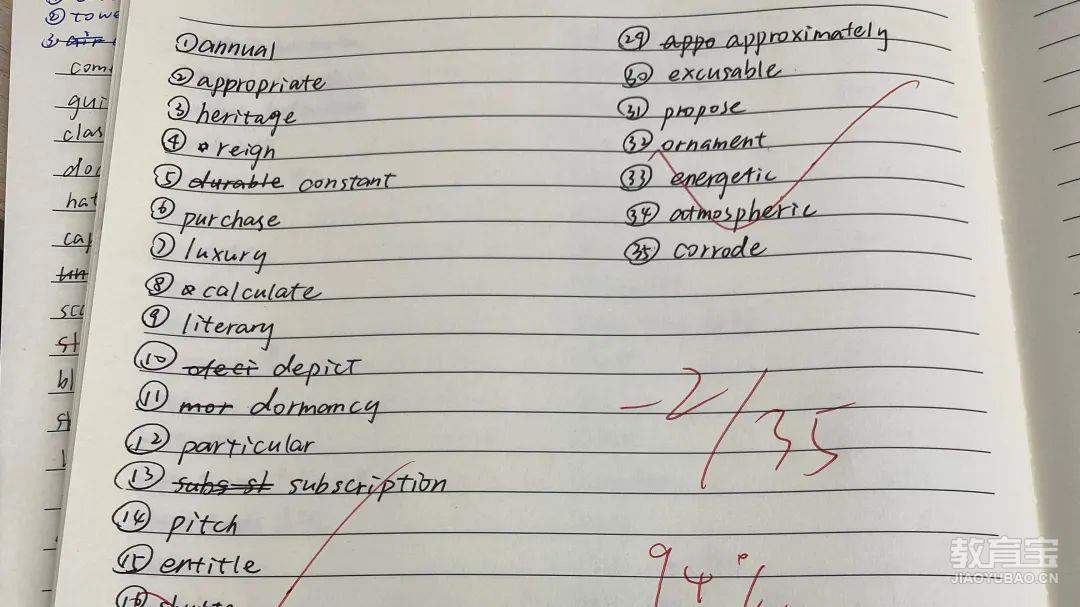 ① annual
② appropriate
③ heritage
④ reign
⑤ durable constant
⑥ purchase
⑦ luxury
⑧ calculate
⑨ literary
⑩ depict
⑪ mor dormancy
⑫ particular
⑬ subs st subscription
⑭ pitch
⑮ entitle
⑯
㉙ appo approximately
㉚ excusable
㉛ propose
㉜ ornament
㉝ energetic
㉞ atmospheric
㉟ corrode
-2/35
94%
② towe
③ air
com
gui
clas
do
hat
cap
sco
st
bl
st
教育宝
JIAOYUBAO.CN